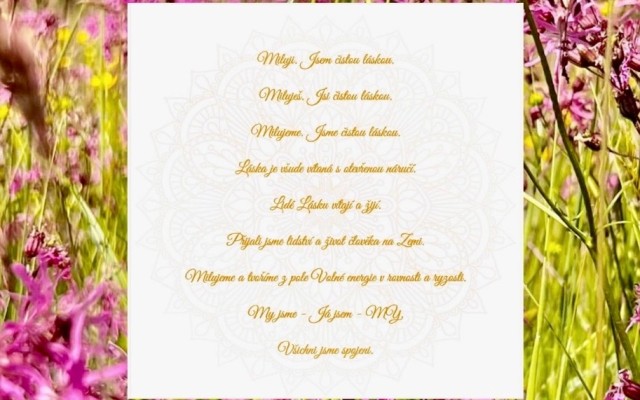 Miluji. Jsem čistou láskou.
Miluješ. Jsi čistou láskou.
Milujeme. Jsme čistou láskou.
Láska je všude vítaná s otevřenou náručí.
Lidé Lásku vítají a žijí.
Přijali jsme lidství a život člověka na Zemi.
Milujeme a tvoříme z pole Volné energie v rovnosti a ryzosti.
My jsme - Já jsem - MY.
Všichni jsme spojeni.